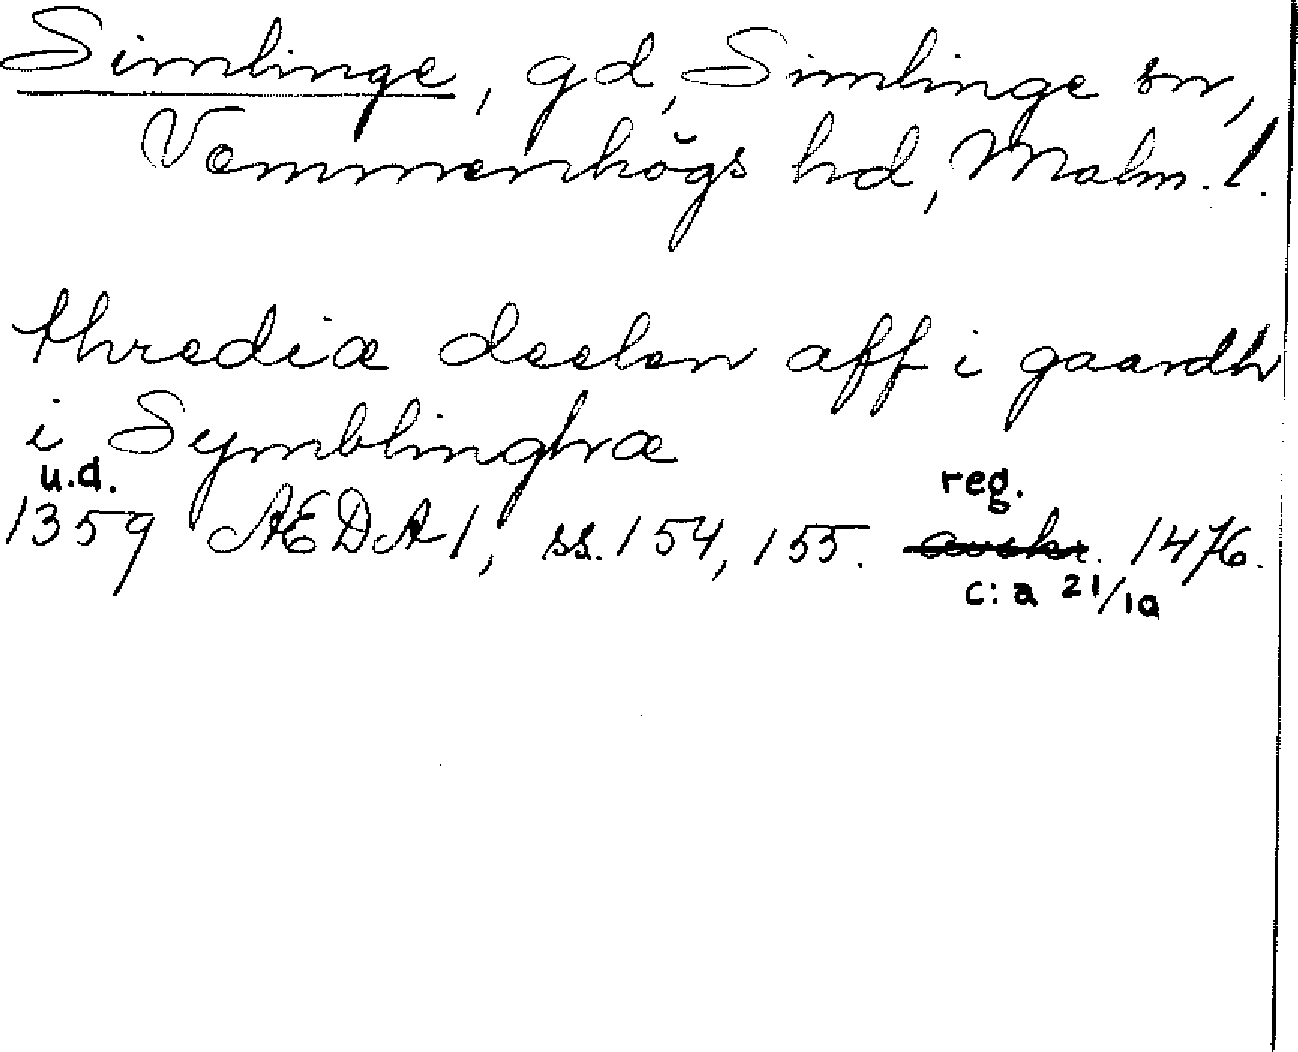 Simlinge, gd, Simlinge sn,
Vemmenhögs hd, Malm. l.
thrediæ deelen aff i gaardh
i Symblinghæ
u.d. reg.
1359 AEDA 1, ss. 154, 155. avskr. 1476.
c:a 21/10